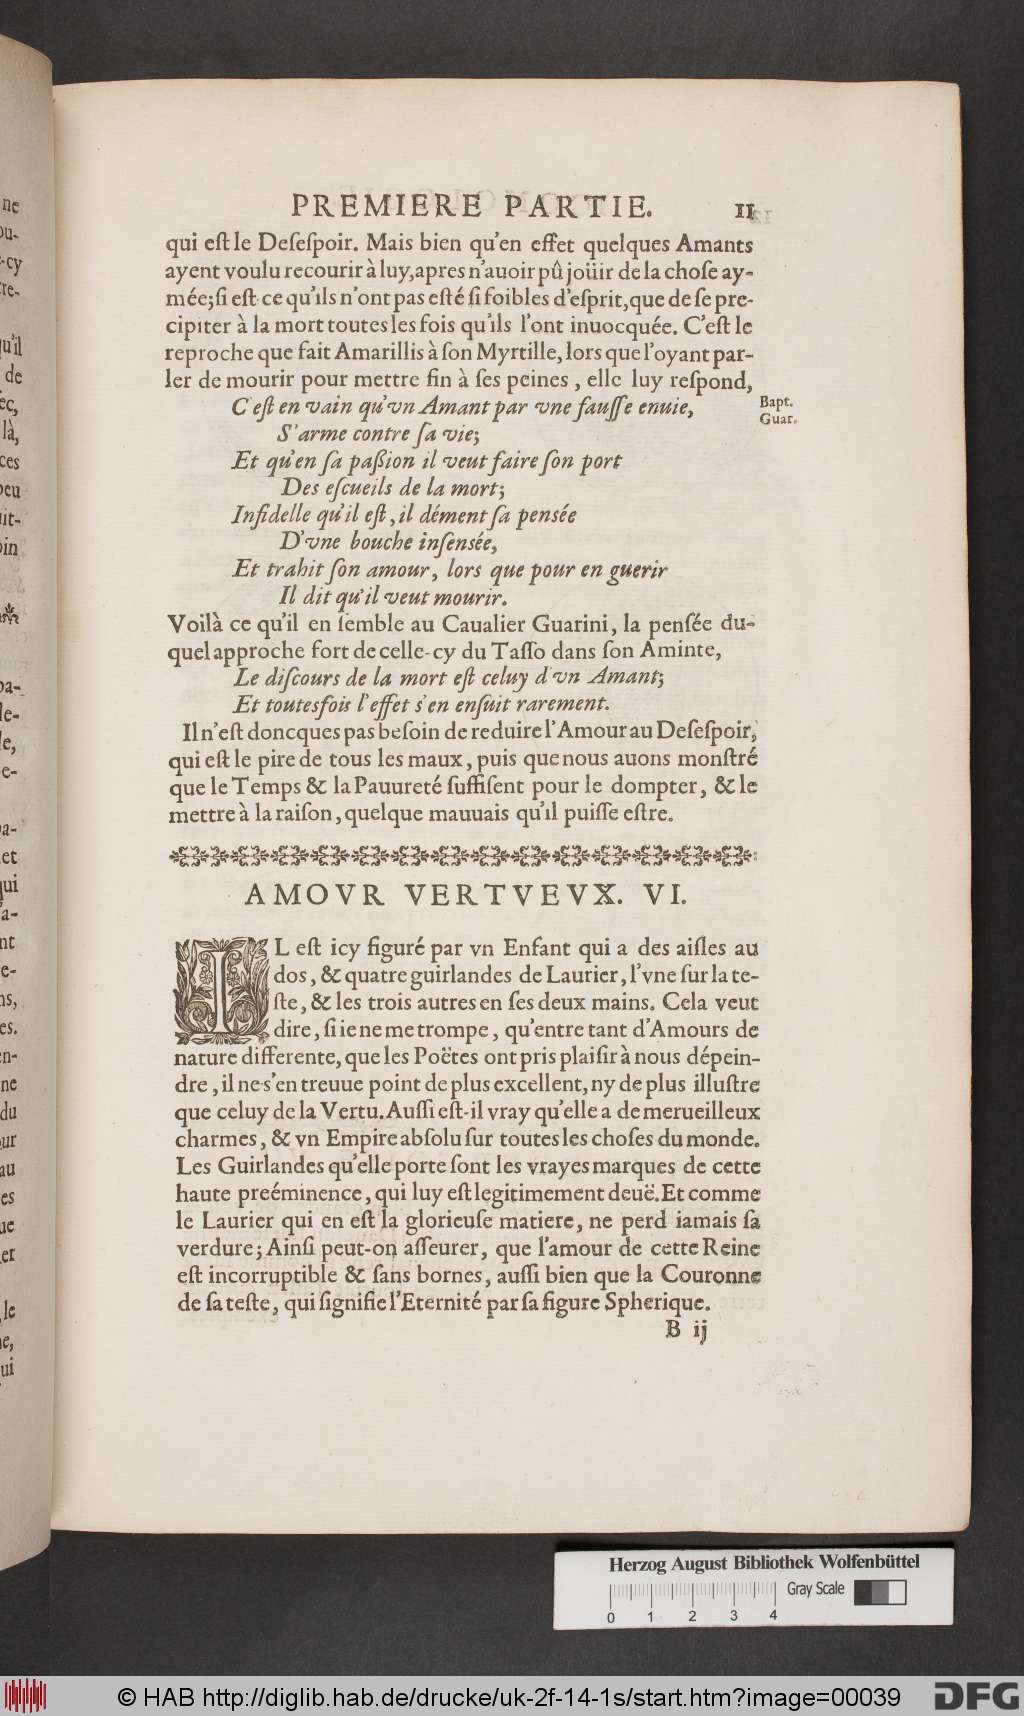 PREMIERE PARTIE. 11
qui eſt le Deſeſpoir. Mais bien qu'en effet quelques Amants
ayent voulu recourir à luy, apres n'auoir pû joüir de la choſe ay-
mée; ſi eſt ce qu'ils n'ont pas eſté ſi foibles d'eſprit, que de ſe pre-
cipiter à la mort toutes les fois qu'ils l'ont inuocquée. C'eſt le
reproche que fait Amarillis à ſon Myrtille, lors que l'oyant par-
ler de mourir pour mettre fin à ſes peines, elle luy reſpond,
C'eſt en vain qu'vn Amant par vne fauſſe enuie,
Bapt.
Guar.
S'arme contre ſa vie;
Et qu'en ſa paßion il veut faire ſon port
Des eſcueils de la mort;
Infidelle qu'il eſt, il dément ſa pensée
D'vne bouche inſensée,
Et trahit ſon amour, lors que pour en guerir
Il dit qu'il veut mourir.
Voilà ce qu'il en ſemble au Caualier Guarini, la penſée du-
quel approche fort de celle-cy du Taſſo dans ſon Aminte,
Le diſcours de la mort eſt celuy d'vn Amant;
Et toutesfois l'effet s'en enſuit rarement.
Il n'eſt doncques pas beſoin de reduire l'Amour au Deſeſpoir,
qui eſt le pire de tous les maux, puis que nous auons monſtré
que le Temps & la Pauureté ſuffiſent pour le dompter, & le
mettre à la raiſon, quelque mauuais qu'il puiſſe eſtre.
AMOVR VERTVEVX. VI.
IL eſt icy figuré par vn Enfant qui a des aiſles au
dos, & quatre guirlandes de Laurier, l'vne ſur la te-
ſte, & les trois autres en ſes deux mains. Cela veut
dire, ſi ie ne me trompe, qu'entre tant d'Amours de
nature differente, que les Poëtes ont pris plaiſir à nous dépein-
dre, il ne s'en treuue point de plus excellent, ny de plus illuſtre
que celuy de la Vertu. Auſſi eſt-il vray qu'elle a de merueilleux
charmes, & vn Empire abſolu ſur toutes les choſes du monde.
Les Guirlandes qu'elle porte ſont les vrayes marques de cette
haute preéminence, qui luy eſt legitimement deuë. Et comme
le Laurier qui en eſt la glorieuſe matiere, ne perd iamais ſa
verdure; Ainſi peut-on aſſeurer, que l'amour de cette Reine
eſt incorruptible & ſans bornes, auſſi bien que la Couronne
de ſa teſte, qui ſignifie l'Eternité par ſa figure Spherique.
B ij
Herzog August Bibliothek Wolfenbüttel
Gray Scale
0 1 2 3 4
© HAB http://diglib.hab.de/drucke/uk-2f-14-1s/start.htm?image=00039
DFG